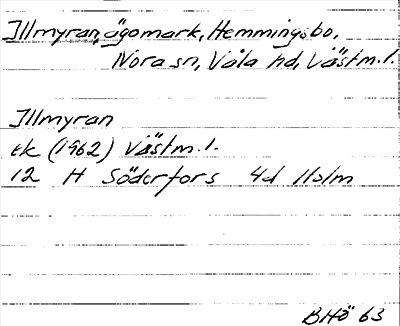 Illmyran, ägomark, Hemmingsbo,
Nora sn, Våla hd, Västm.l.
Illmyran
ek (1962) Västm.l.
12 H Söderfors 4d Holm
BHö 63